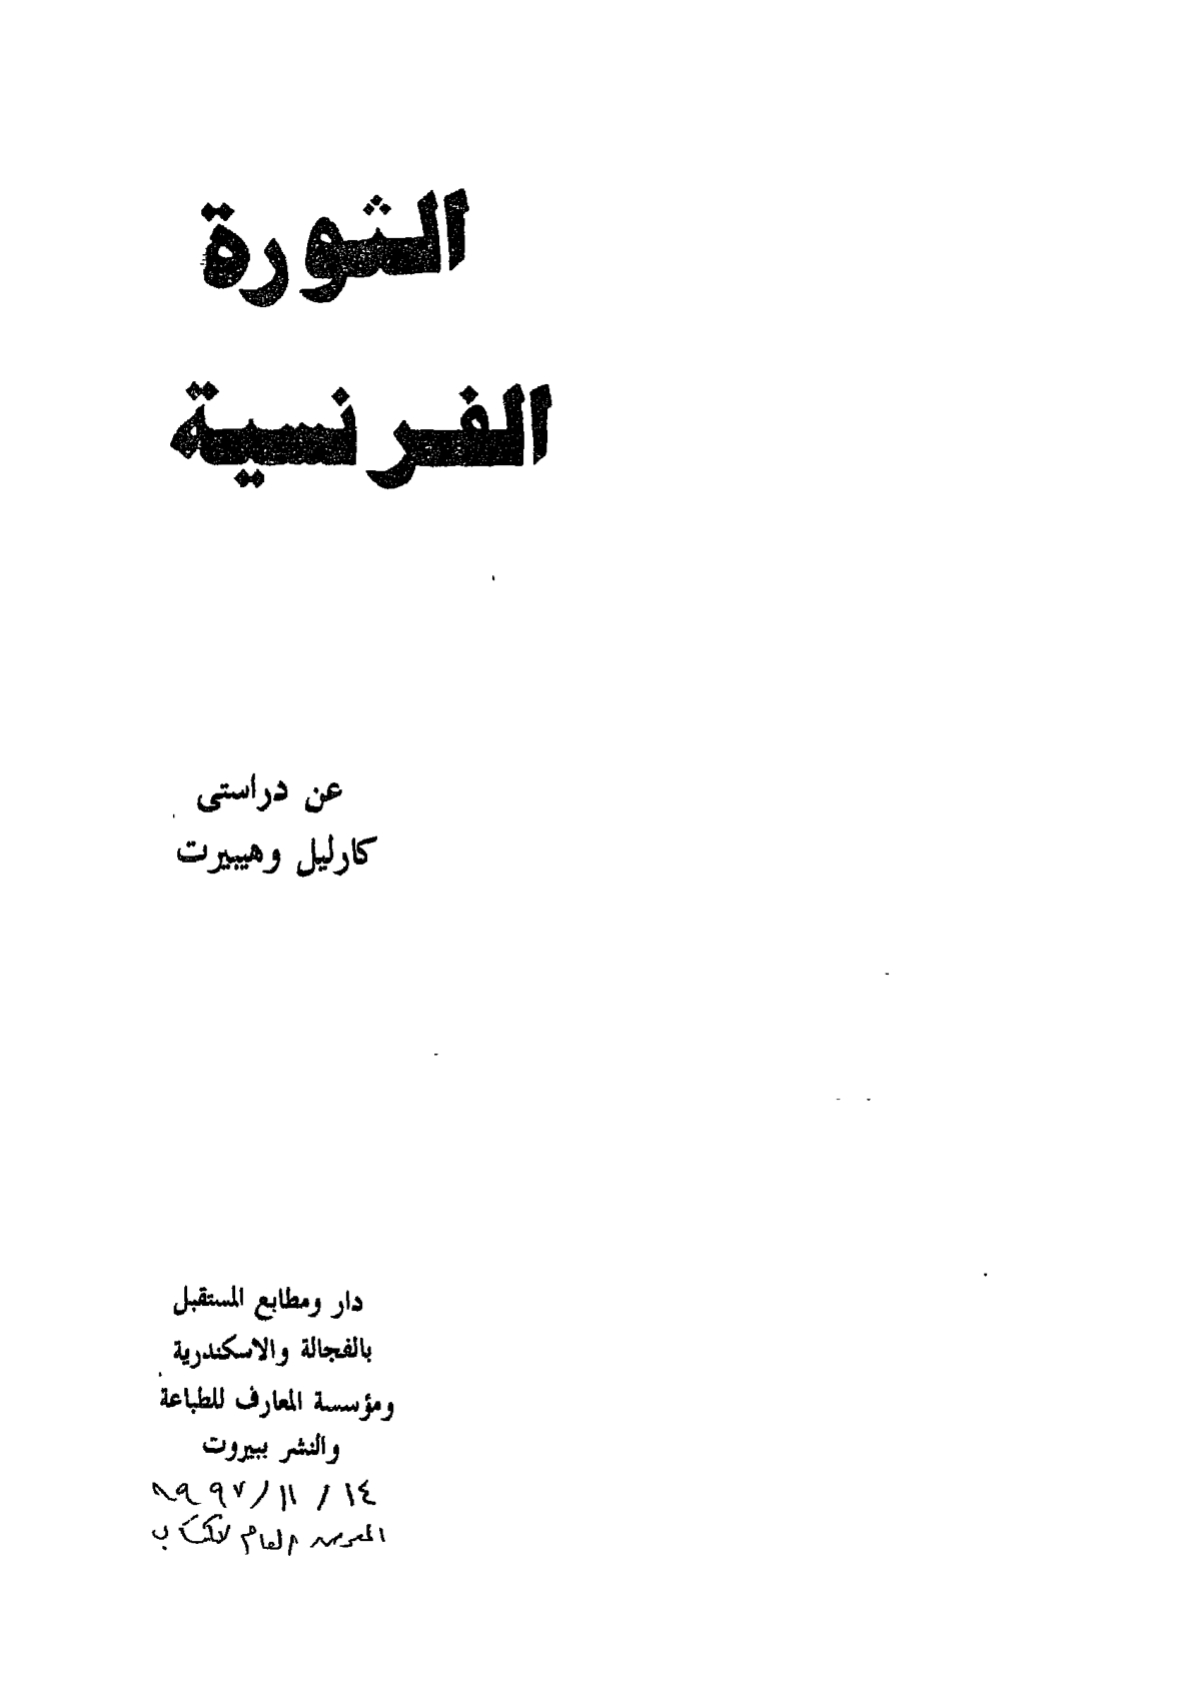 الثورة
الفرنسية
عن دراستى
كارليل وهيبيرت
دار ومطابع المستقبل
بالفجالة والاسكندرية
ومؤسسة المعارف للطباعة
والنشر ببيروت
١٤ / ١١ / ١٩٩٧
المعرض العام للكتاب